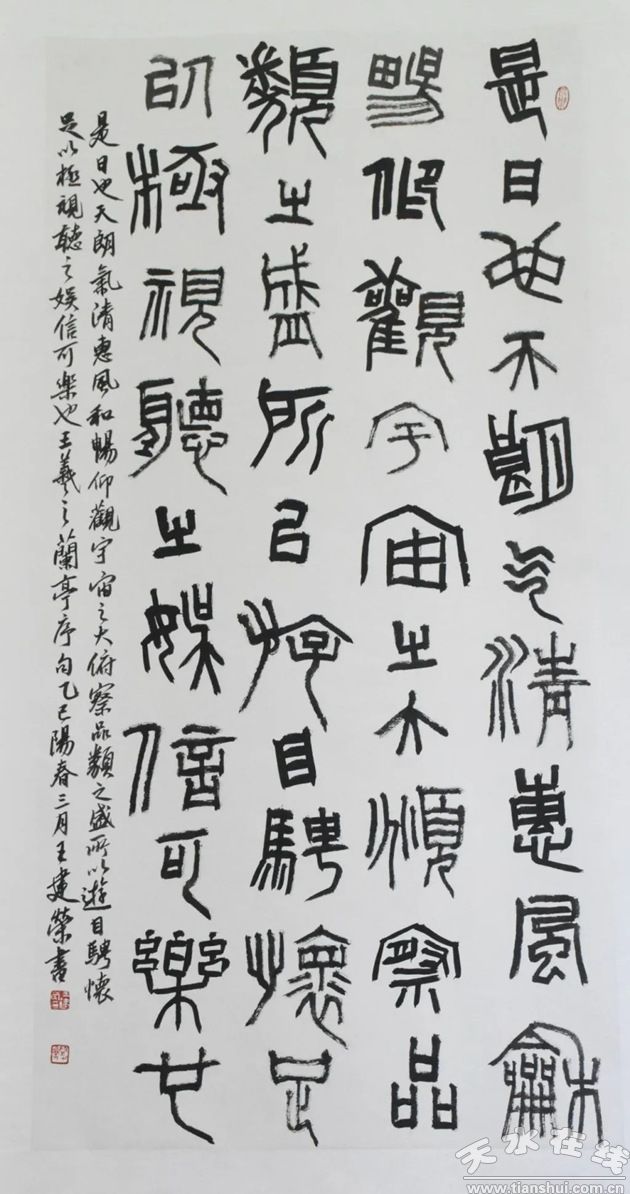 是日也天朗气清惠風龢
暢仰觀宇宙之大頫察品
類之盛所以斿目騁懷足
以極視聽之娛信可樂也
是日也天朗氣清惠風和暢仰觀宇宙之大俯察品類之盛所以遊目騁懷
足以極視聽之娛信可樂也王羲之蘭亭序句乙巳陽春三月王建榮書
天水在线
www.tianshui.com.cn